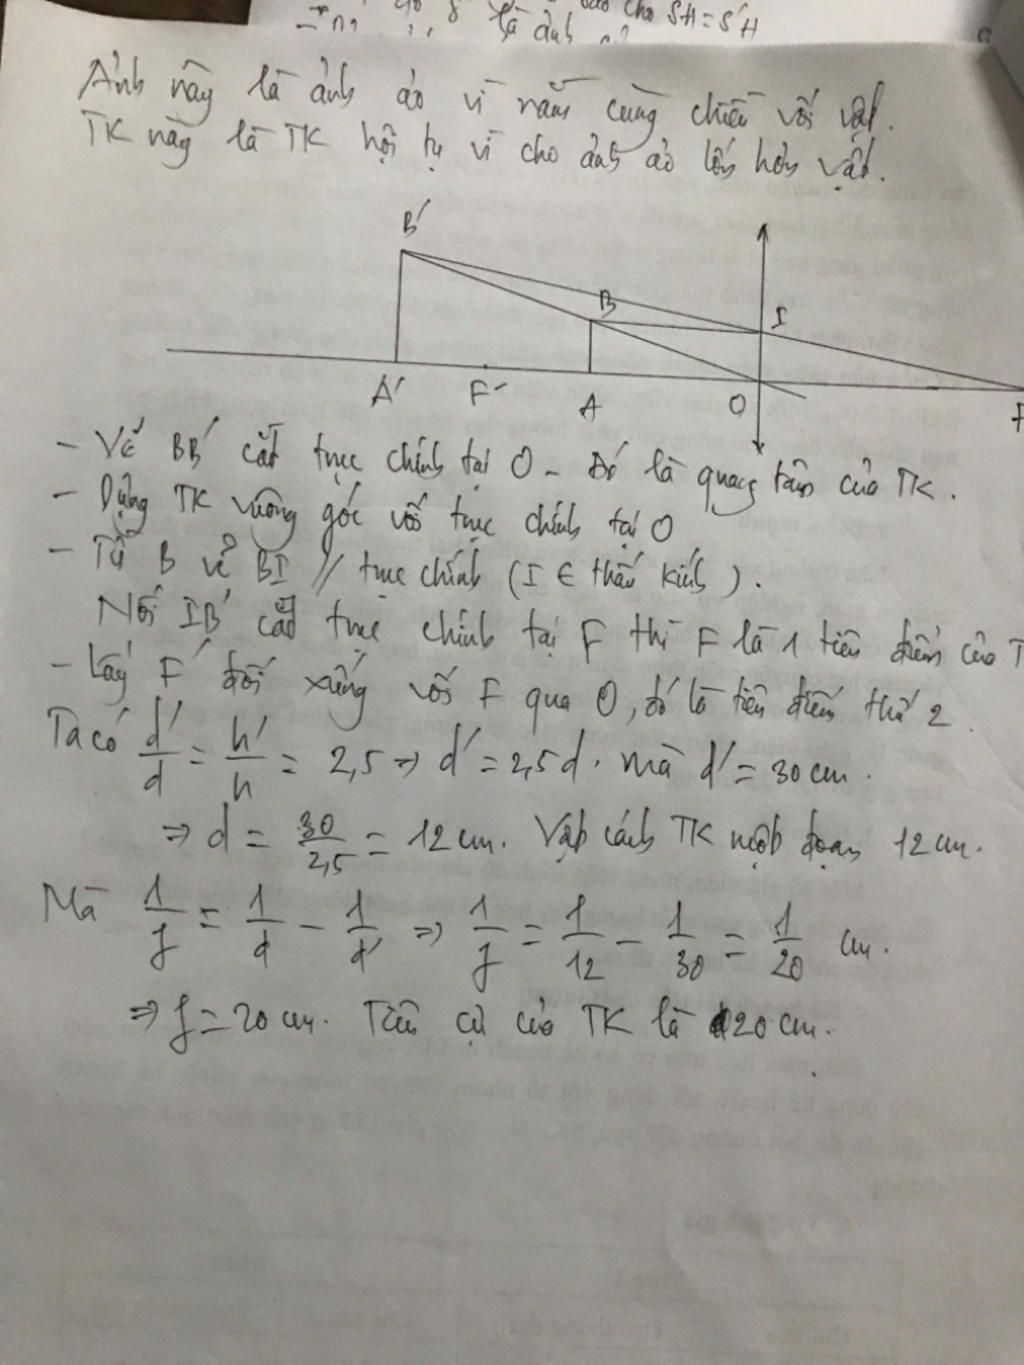 cho SH = S'H
là ảnh
Ảnh này là ảnh ảo vì nằm cùng chiều với vật.
TK này là TK hội tụ vì cho ảnh ảo lớn hơn vật.
B'
B
I
A'
F'
A
O
F
- Vẽ BB' cắt trục chính tại O - Đó là quang tâm của TK.
- Dựng TK vuông góc với trục chính tại O
- Từ B vẽ BI // trục chính (I ∈ thấu kính).
Nối IB' cắt trục chính tại F thì F là 1 tiêu điểm của T
- Lấy F' đối xứng với F qua O, đó là tiêu điểm thứ 2.
Ta có d'/d = h'/h = 2,5 => d' = 2,5d. mà d' = 30 cm.
=> d = 30/2,5 = 12 cm. Vật cách TK một đoạn 12 cm.
Mà 1/f = 1/d - 1/d' => 1/f = 1/12 - 1/30 = 1/20 cm.
=> f = 20 cm. Tiêu cự của TK là 20 cm.